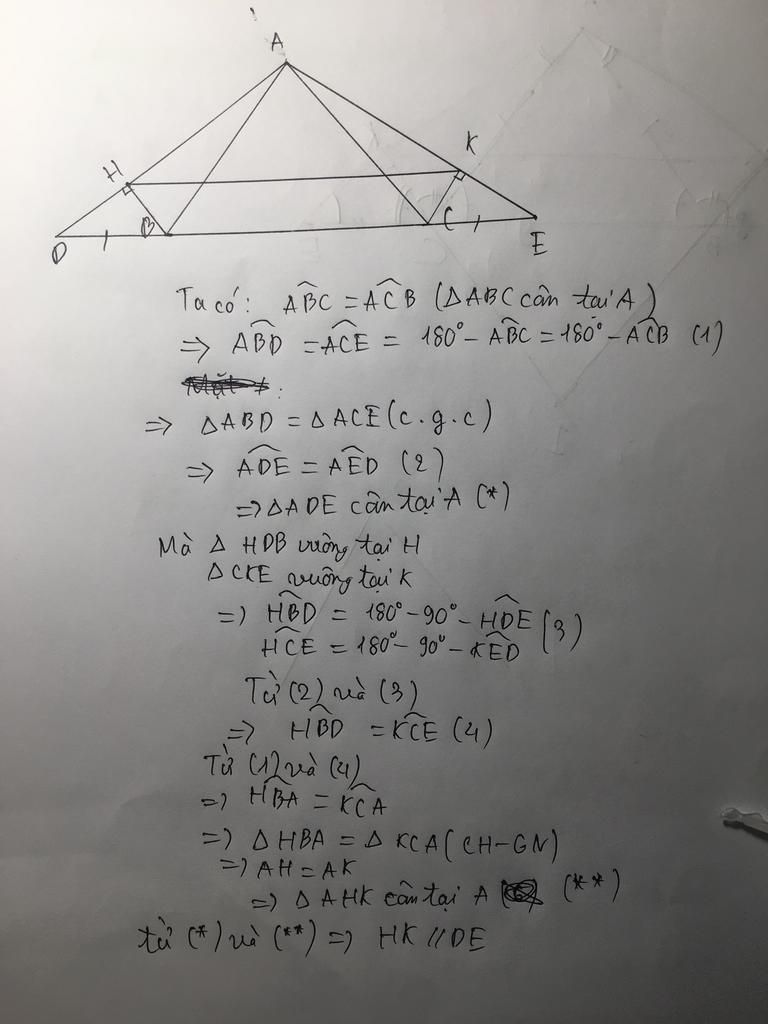 A
H
K
D
B
C
E
Ta có: ABC = ACB (ΔABC cân tại A)
=> ABD = ACE = 180° - ABC = 180° - ACB (1)
=> ΔABD = ΔACE (c.g.c)
=> ADE = AED (2)
=> ΔADE cân tại A (*)
Mà Δ HDB vuông tại H
Δ CKE vuông tại K
=> HBD = 180° - 90° - HDE (3)
HCE = 180° - 90° - KED
Từ (2) và (3)
=> HBD = KCE (4)
Từ (1) và (4)
=> HBA = KCA
=> Δ HBA = Δ KCA (CH-GN)
=> AH = AK
=> Δ AHK cân tại A (**)
từ (*) và (**) => HK // DE